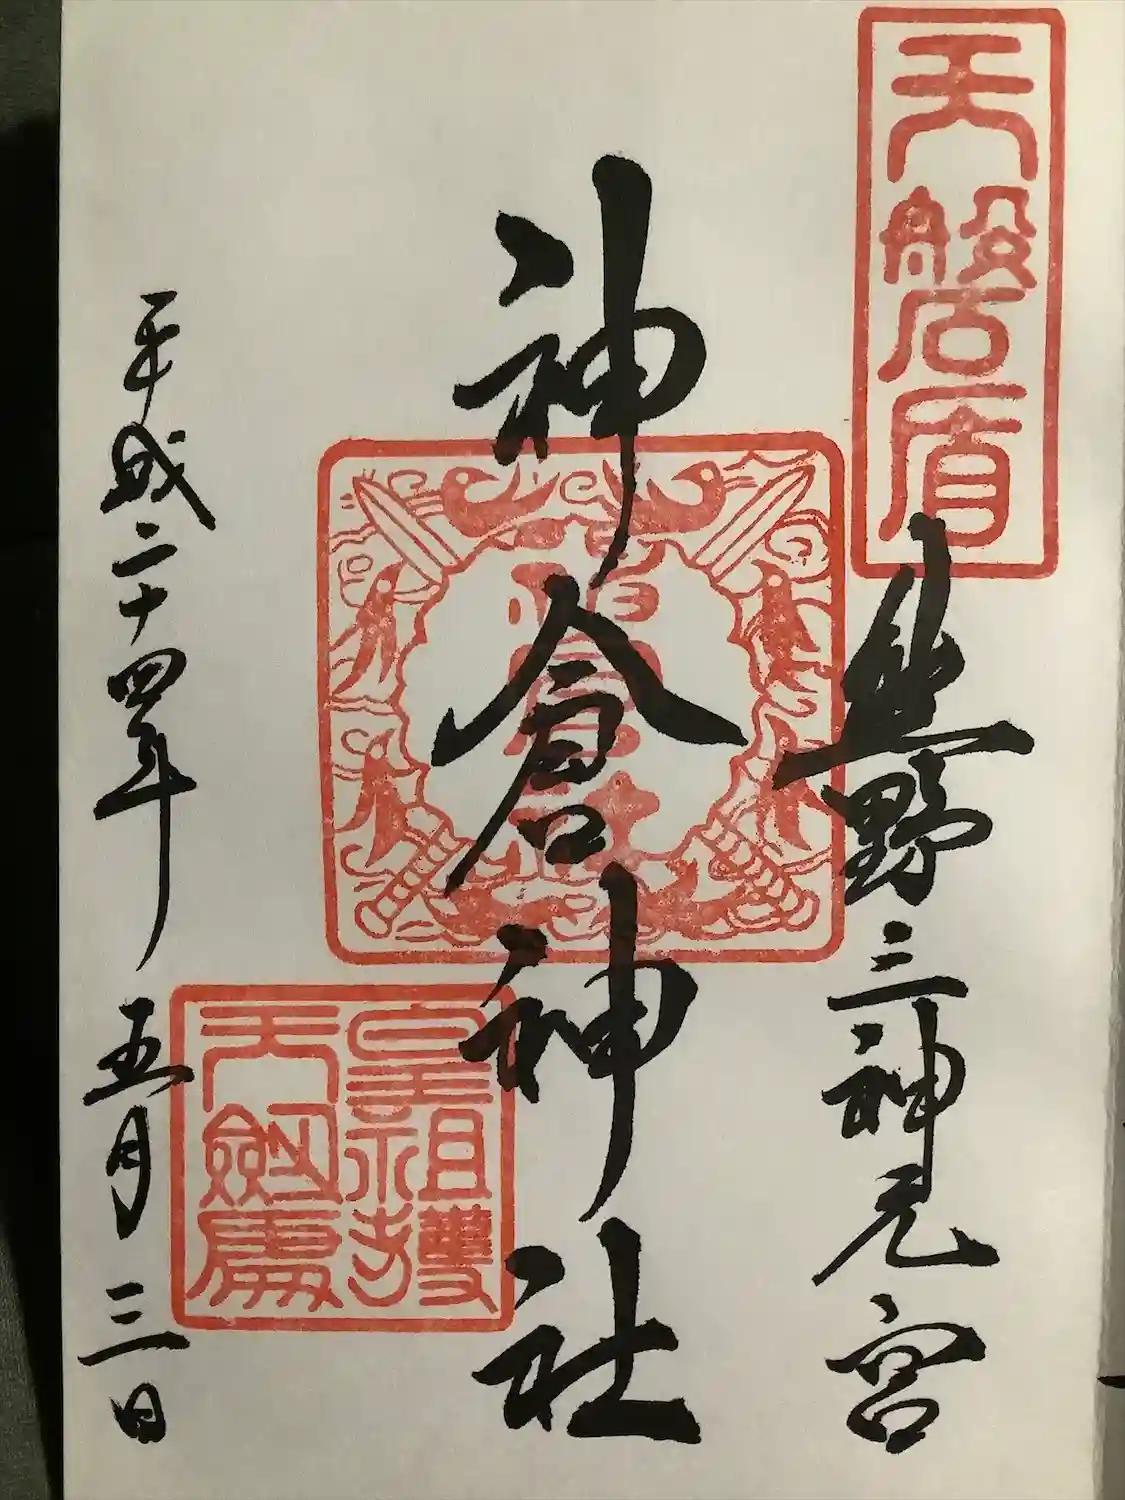 天磐盾
熊野三神元宮
神倉神社
皇祖護
天劔處
平成二十四年 五月三日